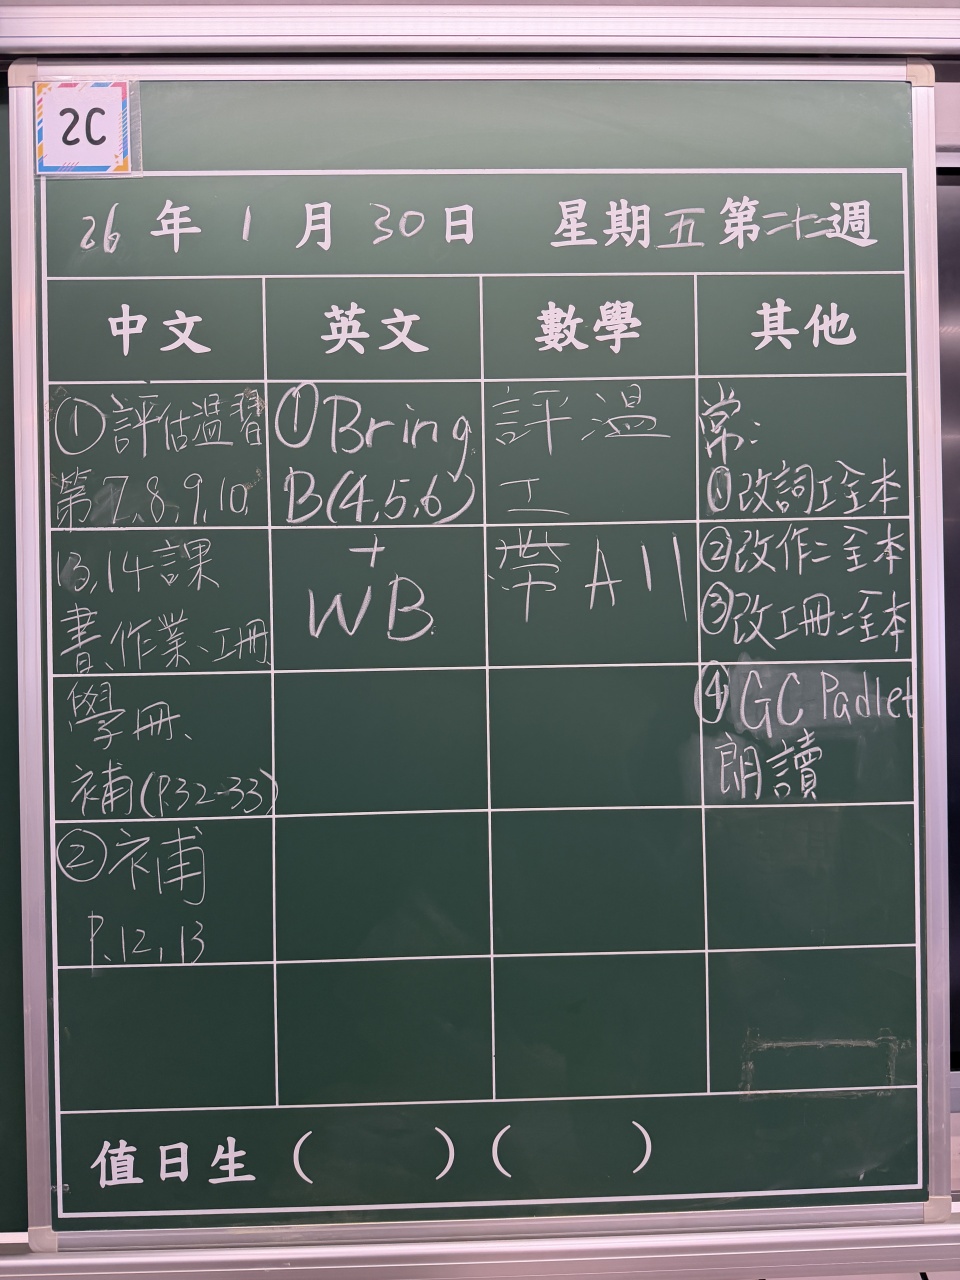 2C
26 年 1 月 30 日 星期五第二十二週
中文 英文 數學 其他
① 評估溫習
第7,8,9,10,
13,14課
書、作業、工冊
學冊、
補(P.32-33)
② 補
P.12,13
① Bring
B(4,5,6)
+
WB
評溫
工
帶All
常:
① 改詞工全本
② 改作二全本
③ 改工冊二全本
④ GC Padlet
朗讀
值日生 ( ) ( )